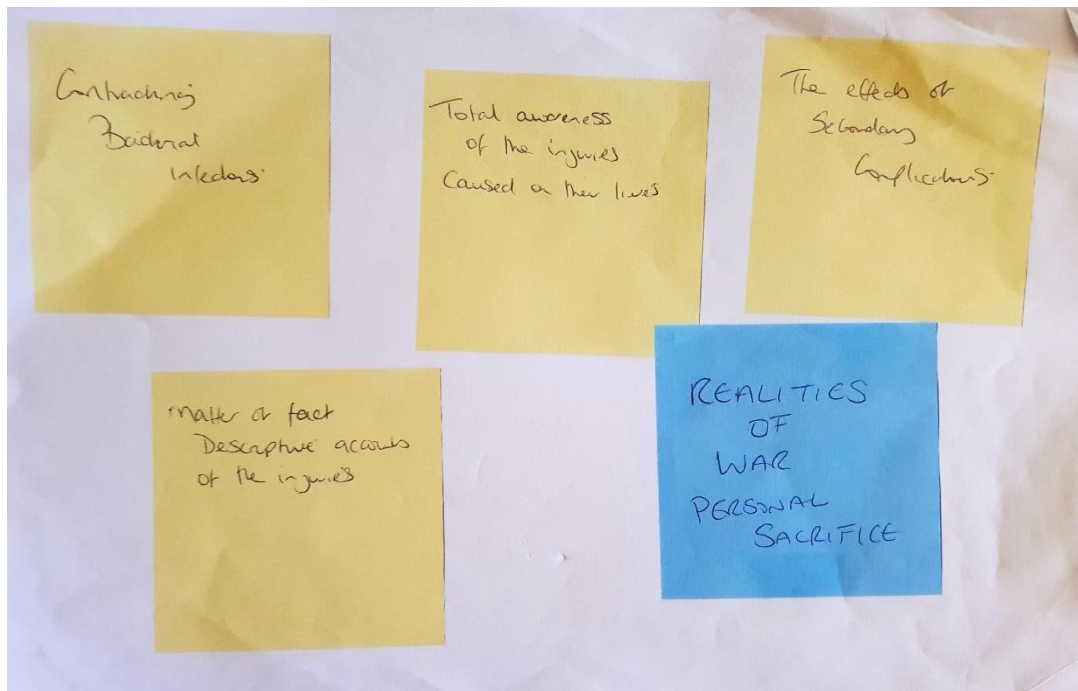 Contracting
Bacterial
infections
Total awareness
of the injuries
Caused on their lives
The effects of
Secondary
Complications
Matter of fact
Descriptive accounts
of the injuries
REALITIES
OF
WAR
PERSONAL
SACRIFICE